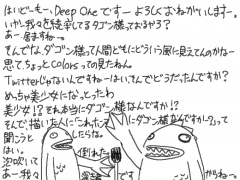 はいどーもー、Deep Oneですーよろしくおねがいしますー。
いやー我々を統率してるダゴン様っておるやろ?
あー居ますねー。
そんでな、ダゴン様って人間どもにどういう風に見えてんのかなー
思て、ちょっとcolorsっての見たねん
Twitterじゃないんですねーはいーそんでどうだったんですか?
めっちゃ美少女になっとったわ
美少女!?それ本当にダゴン様なんですか!?
そんで、描いた人に「これホンマにダゴン様なんですか~?」って
聞こうと
したらな。
はい。
倒れた。
次呼いて
あー我々
深海
です